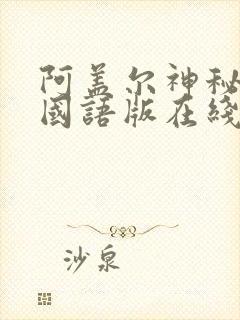 阿盖尔神秘
國語版在綫
沙泉